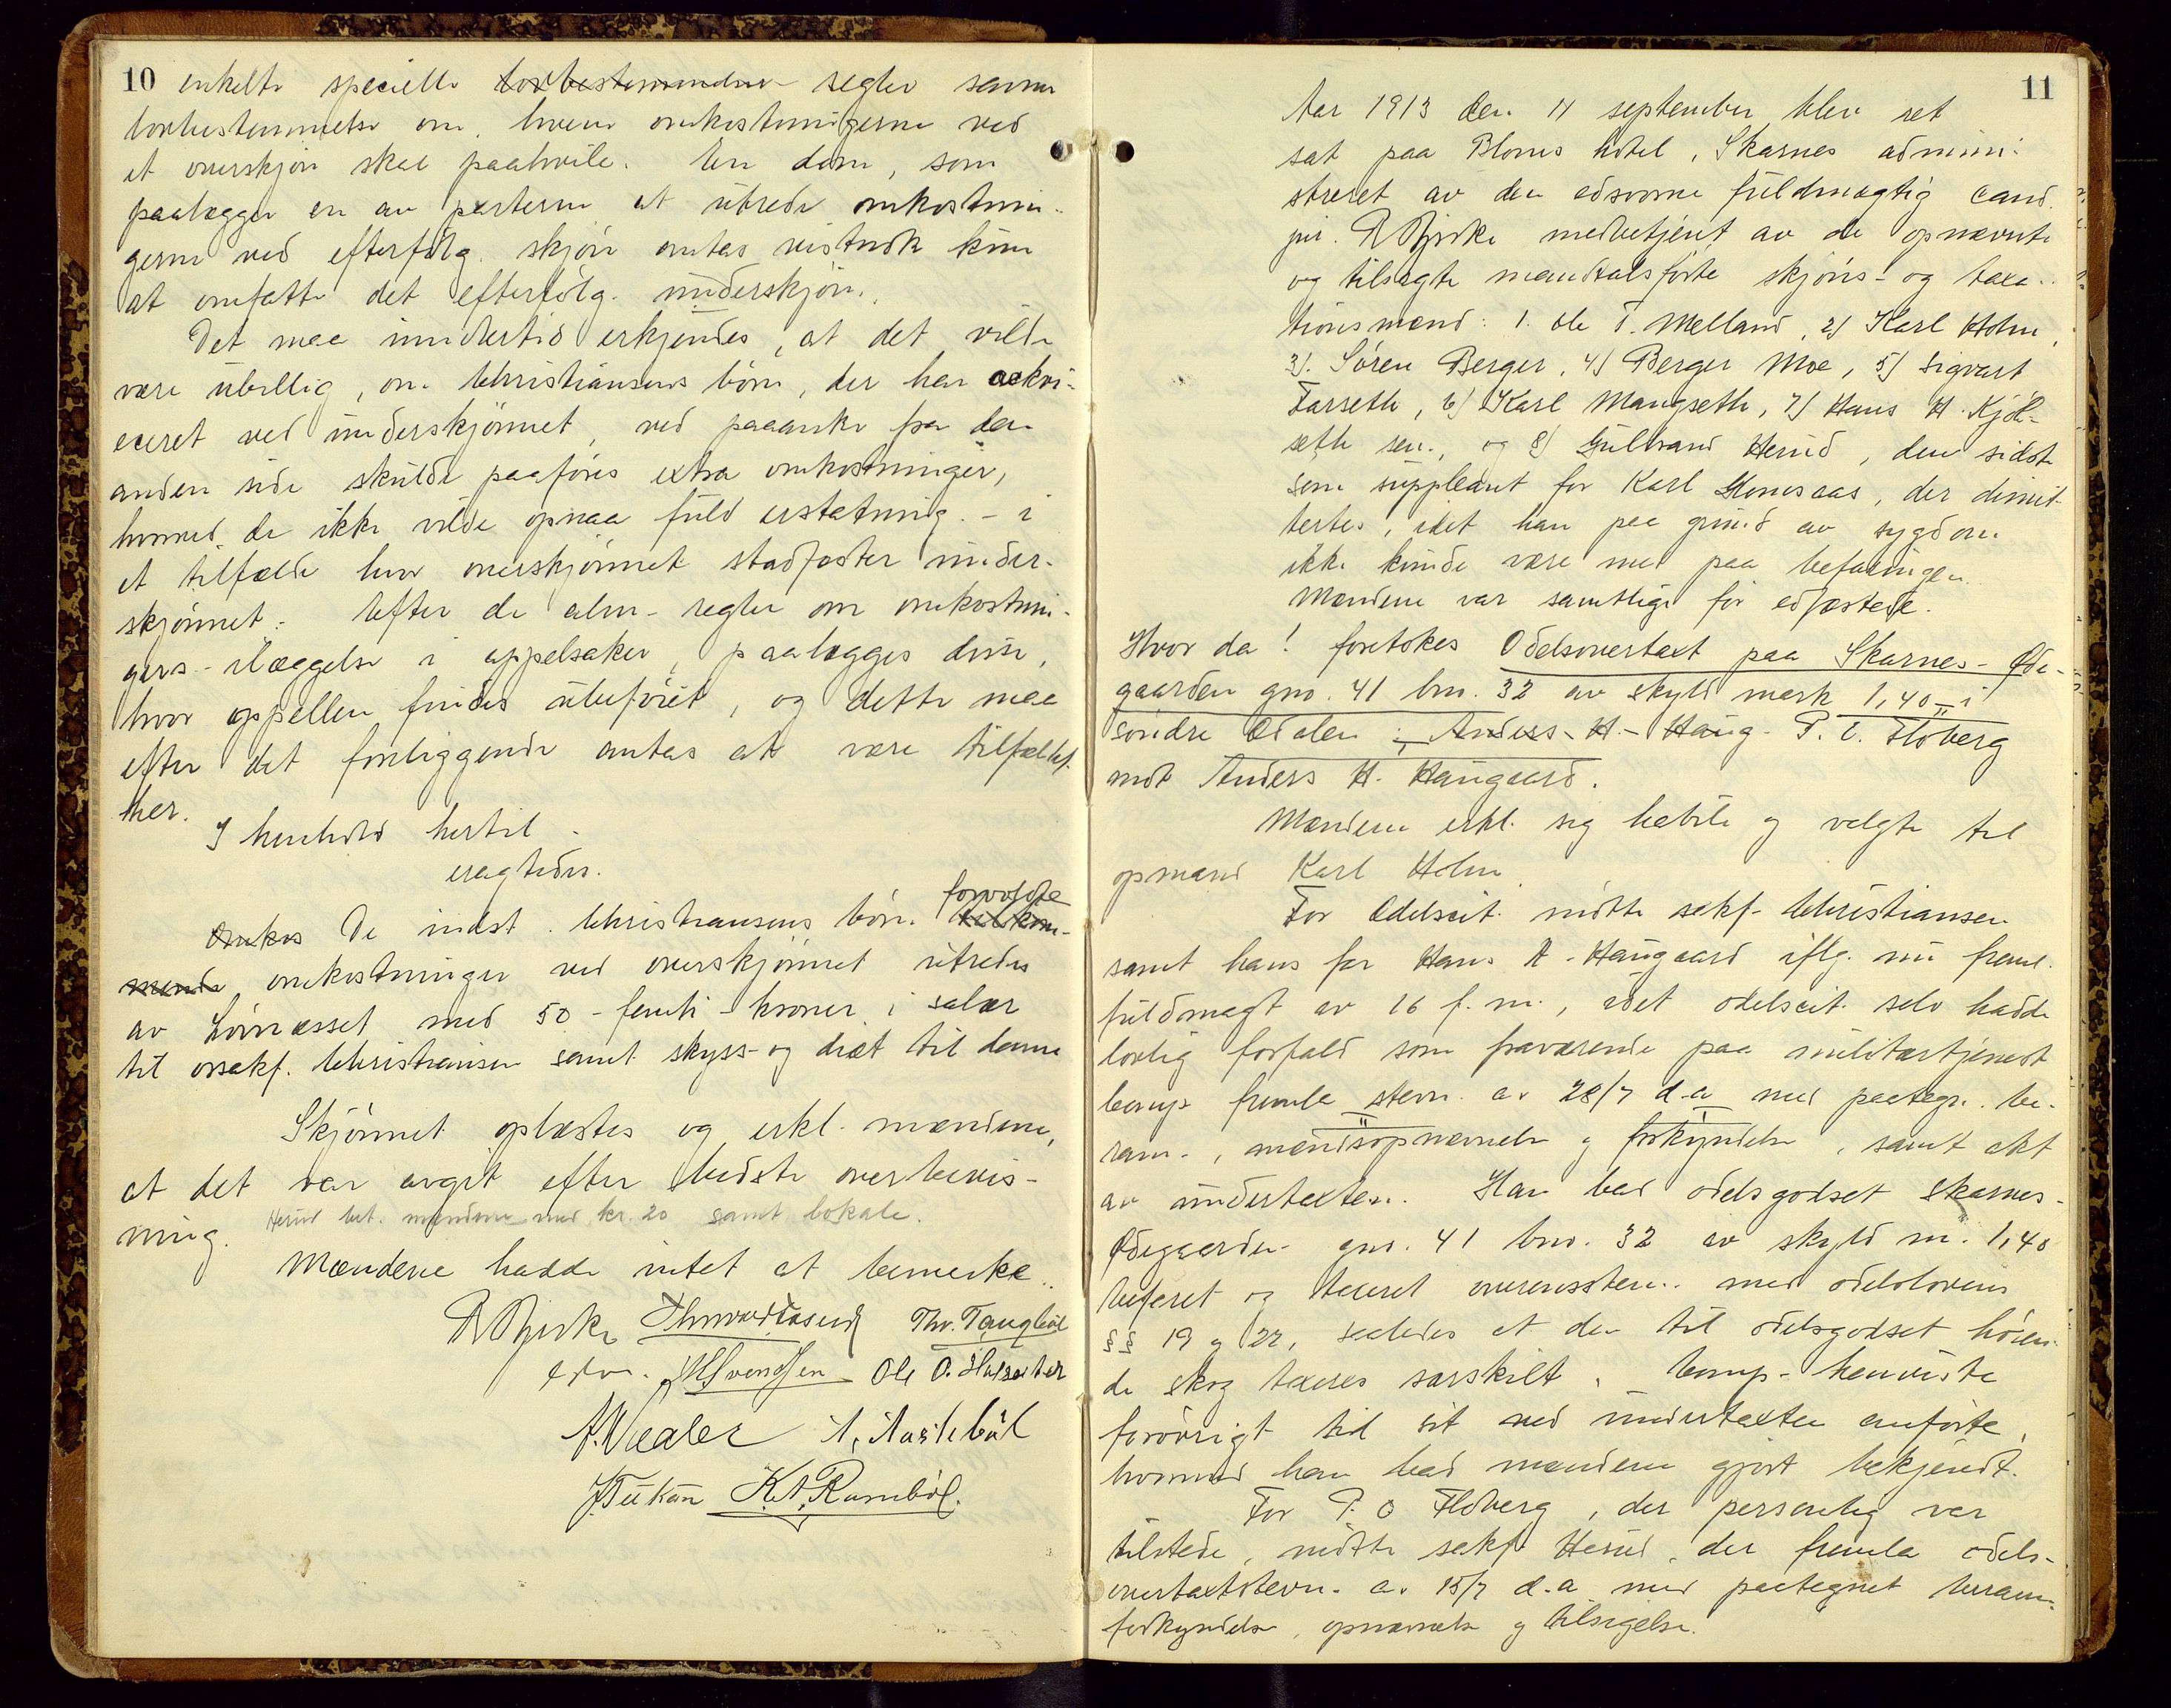 10 enkelte specielle lovbestemmelser regler savnes
lovbestemmelse om, hvem omkostningerne ved
et overskjøn skal paahvile. En dom, som
paalægger en av parterne at utrede omkostnin-
gerne ved efterfølg. skjøn antas vistnok kun
at omfatte det efterfølg. underskjøn.
Det maa imidlertid erkjendes, at det vilde
være ubillig, om Christiansens børn, der har ackvi-
eceret ved underskjønnet, ved paaanke fra den
anden side skulde paaføres extra omkostninger,
hvorved de ikke vilde opnaa fuld erstatning - i
et tilfælde hvor overskjønnet stadfæster under-
skjønnet. Efter de alm. regler om omkostnin-
gers ilæggelse i appelsaker, paalægges disse,
hvor appellen findes ubeføiet, og dette maa
efter det foreliggende antas at være tilfældet
her.
I henhold hertil
eragtedes.
Omkos De indst. Christiansens børn forvoldte tilkom-
mende omkostninger ved overskjønnet utredes
av Lövnæsset med 50 - femti - kroner i salær
til orsakf. Christiansen samt skyss- og diæt til denne
Skjønnet oplæstes og erkl. mændene,
at det var avgit efter bedste overbevis-
ning. Herud bet. mændene med kr. 20 samt lokale.
Mændene hadde intet at bemerke.
R Bjerke Thorvald Aaserud Thv. Tangbøl
edsv. M Svendsen Ole O. Hulsæter
A. Wealer A. Aastebøl
J Tukun K. A. Rambøl.
11
Aar 1913 den 11 september blev ret
sat paa Bloms hotel, Skarnes admini-
streret av den edsvorne fuldmægtig cand.
jur. R Bjerke medbetjent av de opnævnte
og tilsagte mandtalsførte skjøns- og taxa-
tionsmænd: 1. Ole T. Melland, 2) Karl Holm,
3). Søren Berger, 4) Berger Moe, 5) Sigvart
Farseth, 6) Karl Mangseth, 7) Hans H. Kjøl-
seth sen., og 8) Gulbrand Herud, den sidste
som suppleant for Karl Stomsaas, der dimit-
tertes, idet han paa grund av sygdom
ikke kunde være med paa befaringen.
Mændene var samtlige før edfæstede.
Hvor da! foretokes Odelsovertaxt paa Skarnes-Øde-
gaarden gno. 41 bno. 32 av skyld mark 1,40 i
søndre Odalen: Anders H. Haug P. O. Floberg
mot Anders H. Haugaard.
Mændene erkl. sig habile og valgte til
opmand Karl Holm.
For Odelscit. møtte sakf. Christiansen
samt hans far Hans A. Haugaard iflg. nu freml.
fuldmagt av 16 f. m., idet odelscit. selv hadde
lovlig forfald som fraværende paa militærtjenest
Comp. fremla stevn. av 28/7 d.a med paategn. be-
ram., mændsopnævnelse og forkyndelse, samt akt
av undertaxten. Han bad odelsgodset Skarnes-
Ødegaarden gno. 41 bno. 32 av skyld m. 1,40
befaret og taxeret overensstem. med odelslovens
§§ 19 og 22, saaledes at den til odelsgodset høren-
de skog taxeres særskilt. Comp. henviste
forøvrigt til sit ved undertaxten anførte,
hvormed han bad mændene gjort bekjendt.
For P. O Floberg, der personlig var
tilstede, møtte sakf. Herud, der fremla odels-
overtaxtstevn. av 15/7 d.a med paategnet beram-
forkyndelse, opnævnelse og tilsigelse.